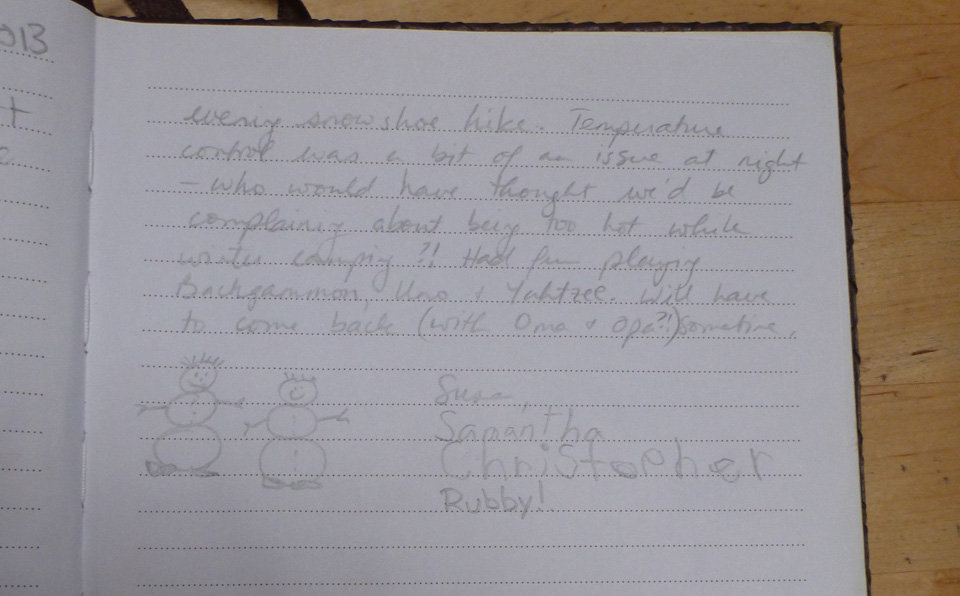 013
t
e
evening snowshoe hike. Temperature
control was a bit of an issue at night
– who would have thought we'd be
complaining about being too hot while
winter camping?! Had fun playing
Backgammon, Uno + Yahtzee. Will have
to come back (with Oma + Opa?!) sometime.
Susan,
Samantha
Christopher
Rubby!